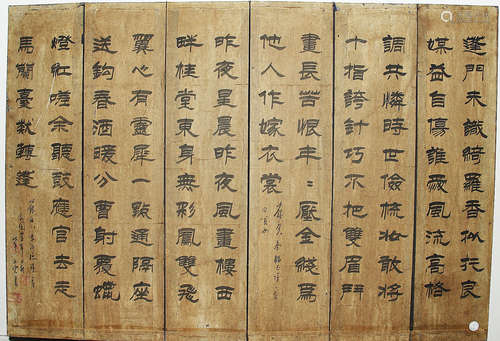 蓬門未識綺羅香擬托良
媒益自傷誰愛風流高格
調共憐時世儉梳妝敢將
十指誇針巧不把雙眉鬥
畫長苦恨年〻壓金綫爲
他人作嫁衣裳
昨夜星晨昨夜風畫樓西
畔桂堂東身無彩鳳雙飛
翼心有靈犀一點通隔座
送鈎春酒暖分曹射覆蠟
燈紅嗟余聽鼓應官去走
馬蘭臺類轉蓬